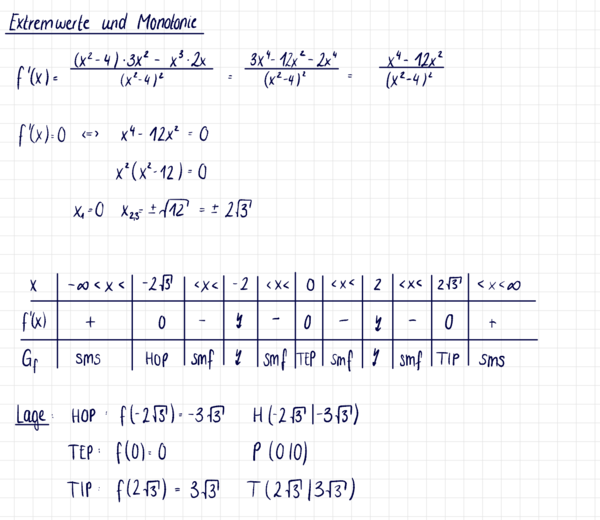 Extremwerte und Monotonie
f'(x) = ((x²-4)·3x² - x³·2x)/(x²-4)² = (3x⁴-12x²-2x⁴)/(x²-4)² = (x⁴-12x²)/(x²-4)²
f'(x)=0 <=> x⁴-12x² = 0
x²(x²-12) = 0
x₁=0 x₂,₃= ±√12 = ± 2√3
x | -∞ < x < | -2√3 | <x< | -2 | <x< | 0 | <x< | 2 | <x< | 2√3 | <x<∞
f'(x) | + | 0 | - | | - | 0 | - | | - | 0 | +
Gf | sms | HOP | smf | | smf | TEP | smf | | smf | TIP | sms
Lage: HOP: f(-2√3) = -3√3 H(-2√3|-3√3)
TEP: f(0) = 0 P(0|0)
TIP: f(2√3) = 3√3 T(2√3|3√3)